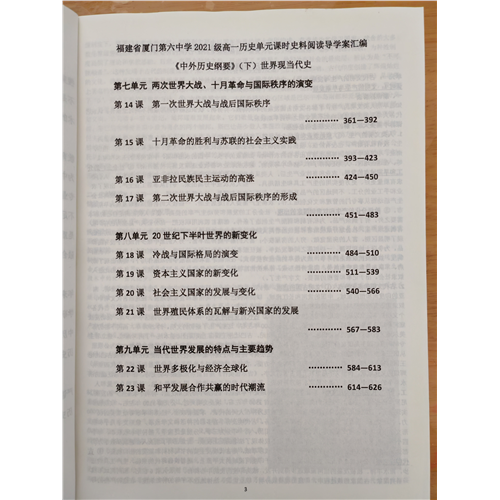 福建省厦门第六中学 2021 级高一历史单元课时史料阅读导学案汇编
《中外历史纲要》（下）世界现当代史
第七单元 两次世界大战、十月革命与国际秩序的演变
第 14 课 第一次世界大战与战后国际秩序
………… 361—392
第 15 课 十月革命的胜利与苏联的社会主义实践
………… 393—423
第 16 课 亚非拉民族民主运动的高涨 ………… 424—450
第 17 课 第二次世界大战与战后国际秩序的形成
………… 451—483
第八单元 20 世纪下半叶世界的新变化
第 18 课 冷战与国际格局的演变 ………… 484—510
第 19 课 资本主义国家的新变化 ………… 511—539
第 20 课 社会主义国家的发展与变化 ………… 540—566
第 21 课 世界殖民体系的瓦解与新兴国家的发展
………… 567—583
第九单元 当代世界发展的特点与主要趋势
第 22 课 世界多极化与经济全球化 ………… 584—613
第 23 课 和平发展合作共赢的时代潮流 ………… 614—626
3